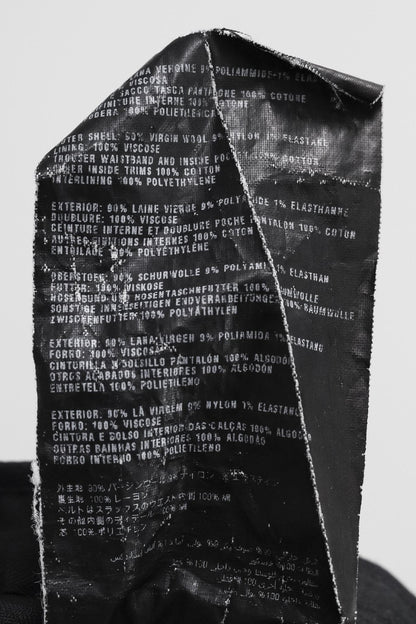 LANA VERGINE 9% POLIAMMIDE 1% ELAS
VISCOSA
SACCO TASCA PANT NE 100% COTONE
FINITURE INTERNE 100% COTONE
ODERA 100% POLIETILE
TER SHELL: 90% VIRGIN WOOL 9% NYLON 1% ELASTANE
LINING: 100% VISCOSE
TROUSER WAISTBAND AND INSIDE POC COTTON
HER INSIDE TRIMS 100% COTTON
INTERLINING 100% POLYETHYLENE
EXTERIOR: 90% LAINE VIERGE 9% POLYAMIDE 1% ELASTHANNE
DOUBLURE: 100% VISCOSE
CEINTURE INTERNE ET DOUBLURE POCHE PANTALON 100% COTON
AUTRES FINITIONS INTERNES 100% COTON
ENTOILAGE 100% POLYÉTHYLÈNE
OBERSTOFF: 90% SCHURWOLLE 9% POLYAMI 1% ELASTHAN
FUTTER: 100% VISKOSE
HOSENBUND UND HOSENTASCHENFUTTER 100% BAUMWOLLE
SONSTIGE INNENSEITIGEN ENDVERARBEITUNGEN 100% BAUMWOLLE
ZWISCHENFUTTER 100% POLYÄTHYLEN
EXTERIOR: 90% LANA VIRGEN 9% POLIAMIDA 1% ELASTANO
FORRO: 100% VISCOSA
CINTURILLA Y BOLSILLO PANTALÓN 100% ALGODÓN
OTROS ACABADOS INTERIORES 100% ALGODÓN
ENTRETELA 100% POLIETILENO
EXTERIOR: 90% LÃ VIAGEM 9% NYLON 1% ELASTANO
FORRO: 100% VISCOSE
CINTURA E BOLSO INTERIOR DAS CALÇAS 100% ALGODÃO
OUTRAS BAINHAS INTERIORES 100% ALGODÃO
FORRO INTERNO 100% POLIETILENO
外生地 90% バージンウール 9% ナイロン 1%
裏生地 100% レーヨン
ベルトはスラックスのウエスト 100% 綿
その他内側の 100%
芯 100% ポリエチレン